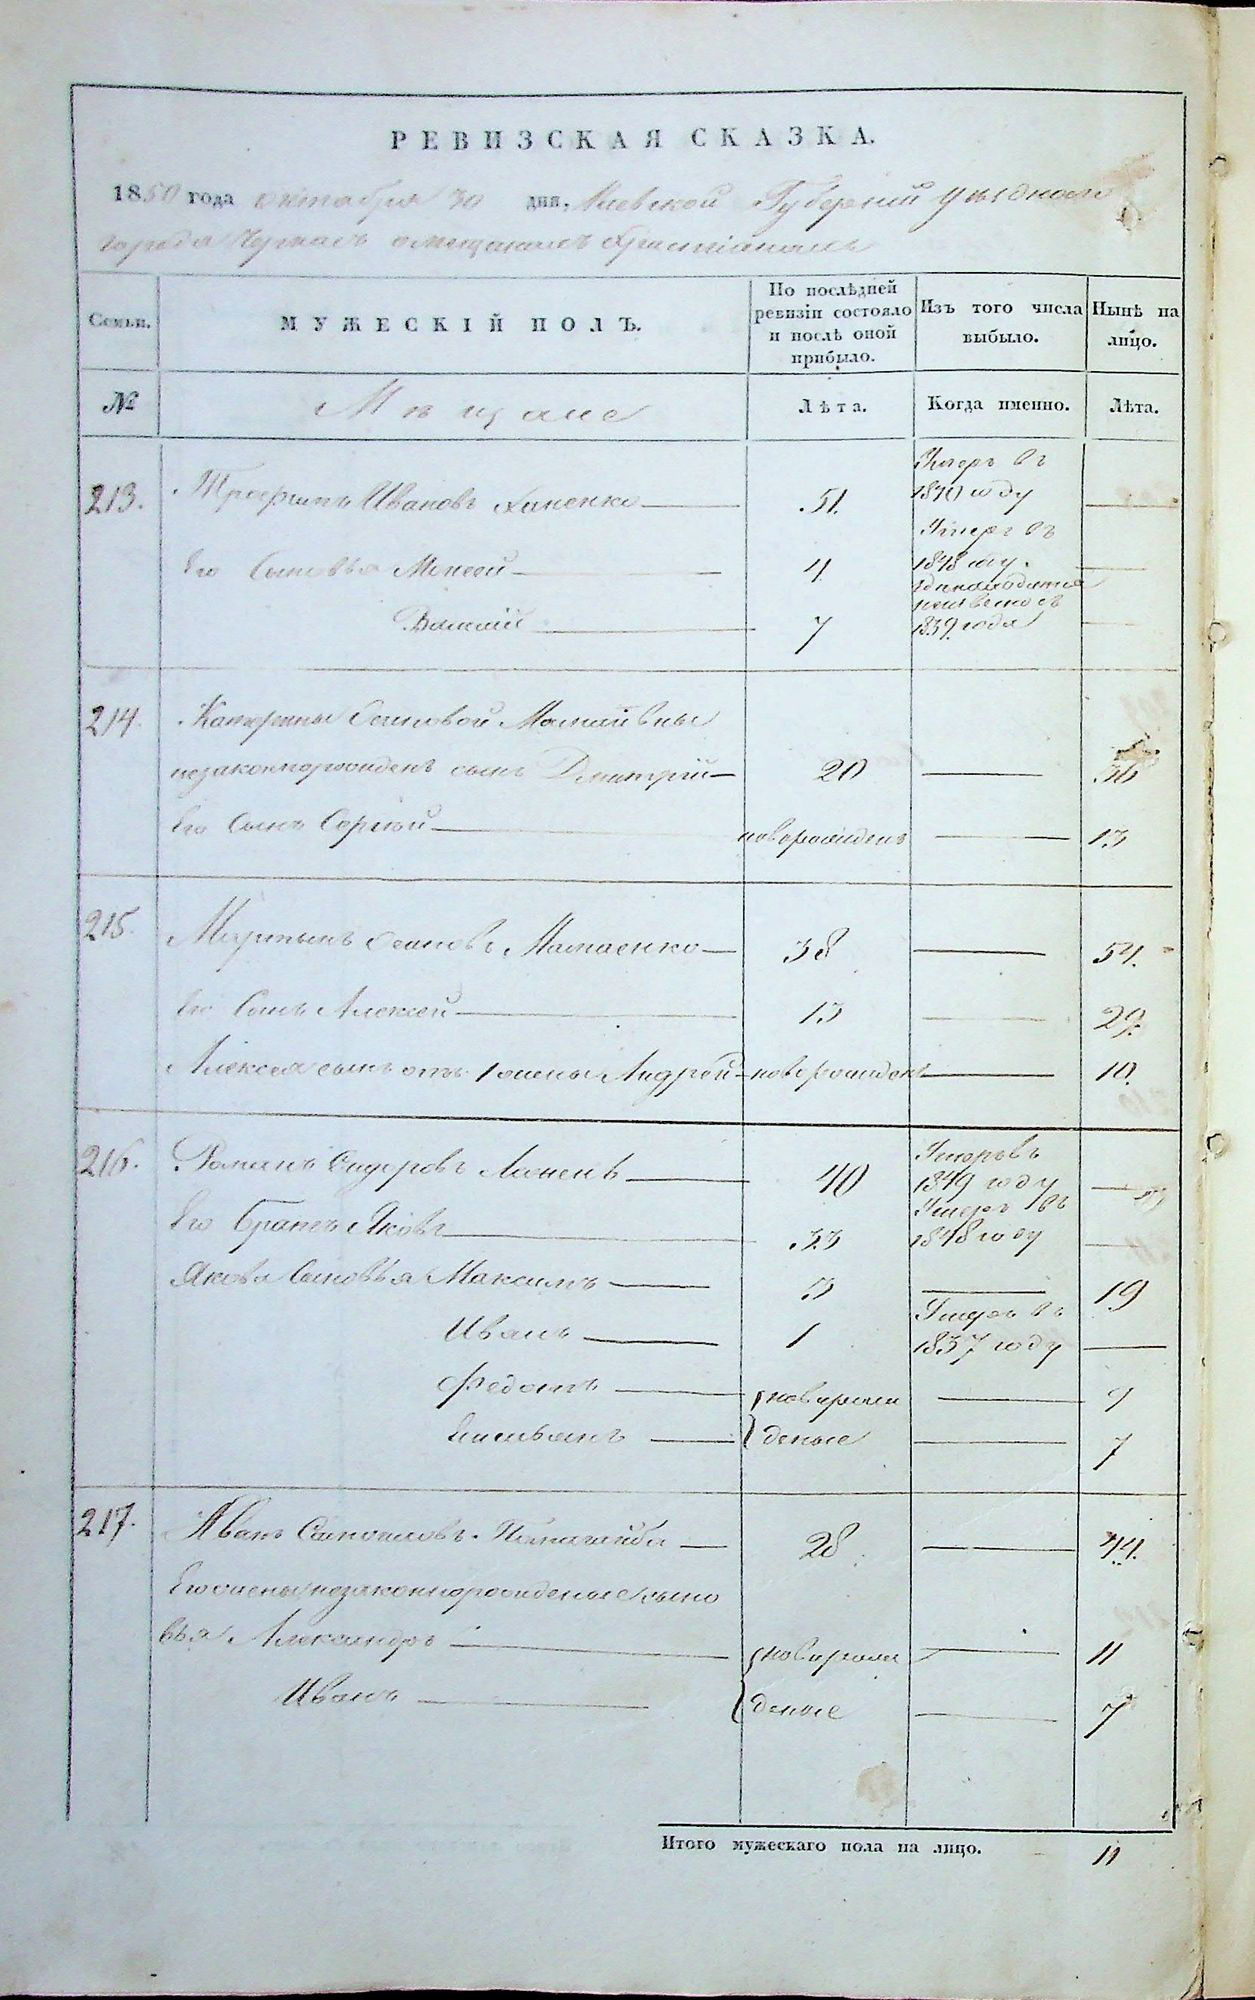 РЕВИЗСКАЯ СКАЗКА.
1850 года октября 30 дня, Киевской Губернии уѣзднаго
города Черкасъ о мещанахъ християнахъ
Семьи.
МУЖЕСКІЙ ПОЛЪ.
По послѣдней ревизіи состояло и послѣ оной прибыло.
Изъ того числа выбыло.
Ныпѣ на лицо.
№
Мѣщане
Лѣта.
Когда именно.
Лѣта.
213. Трофимъ Ивановъ 51. Умеръ въ 1840 году
Его Сыновья Моисей 4 Умеръ въ 1848 году.
Василий 7 гдѣ находится неизвестно съ 1839 года
214. Катерины Осиповой
незаконнорожденъ сынъ Дмитрій 20 36
Его Сынъ Сергѣй новорожденъ 13
215. Мартынъ Осиповъ Мамаенко 38 54.
Его Сынъ Алексей 13 29.
Алексея сынъ отъ 1 жены Андрей новорожденъ 10.
216. Романъ Сидоровъ 40 Умеръ въ 1849 году
Его Братъ Яковъ 33 Умеръ въ 1848 году
Якова Сыновья Максимъ 3 19
Иванъ 1 Умеръ въ 1837 году
Федотъ новорож 9
Емельянъ деные 7
217. Иванъ 28 44.
Его жены незаконнорожденые сыно
вья Александръ новорож 11
Иванъ деные 7
Итого мужескаго пола на лицо. 11